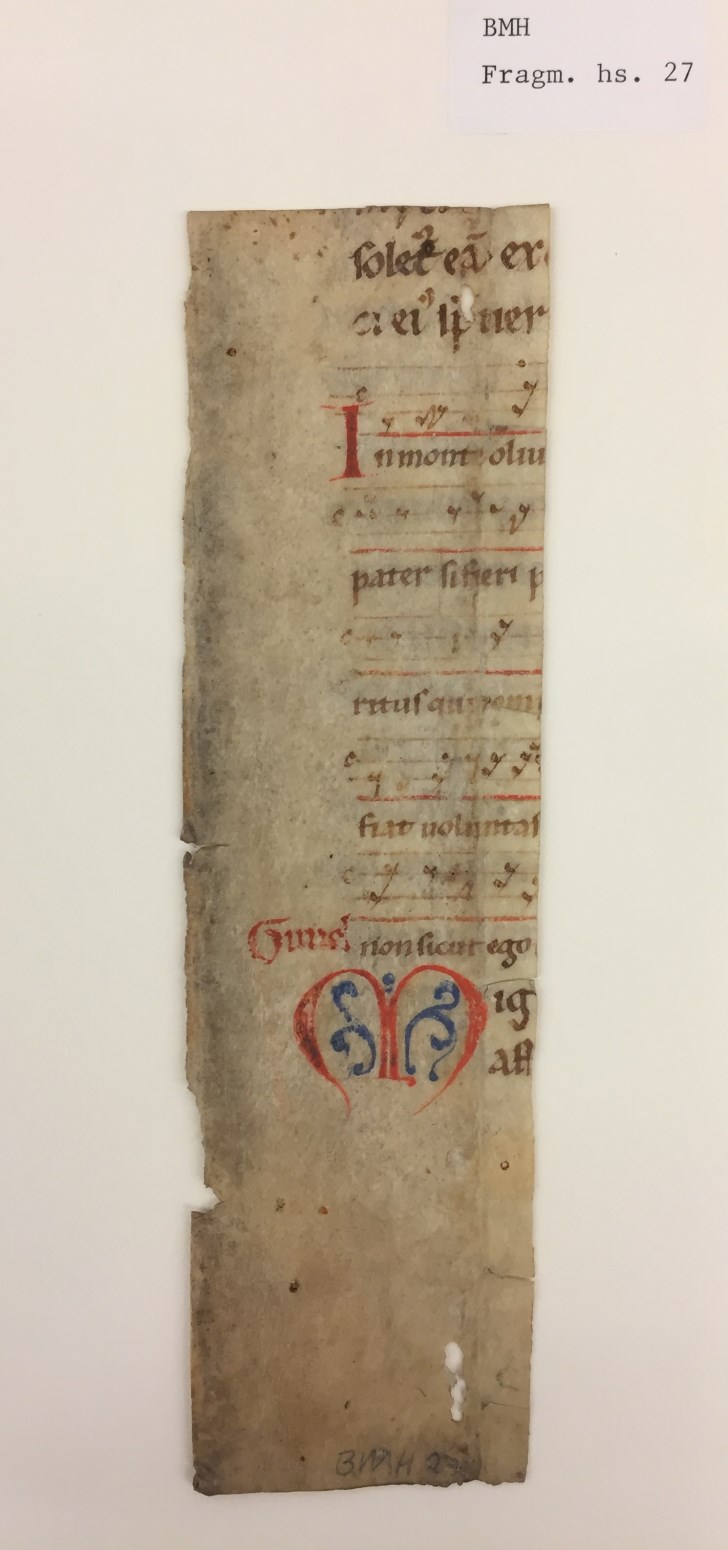 BMH
Fragm. hs. 27
solet eā ex
ei
In mont oliu
pater si fieri p
ritus qui
fiat voluntas
non sicut ego
Mig
aff
BMH 27